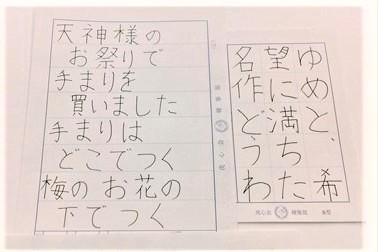 天神様の
お祭りで
手まりを
買いました
手まりは
どこでつく
梅の お花の
下でつく
ゆめと、希
望に満ちた
名作どうわ